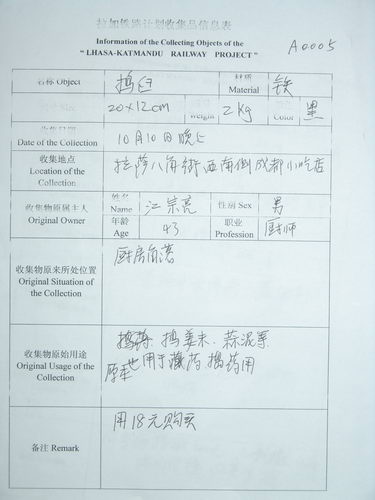 拉加铁路计划收集品信息表
Information of the Collecting Objects of the
"LHASA-KATMANDU RAILWAY PROJECT"
A0005
名称 Object 捣臼 材质 Material 铁
20×12cm Weight 2Kg Color 黑
Date of the Collection 10月10日晚上
收集地点 Location of the Collection 拉萨八角街西南侧成都小吃店
收集物原属主人 Original Owner
姓名 Name 江崇亮 性别 Sex 男
年龄 Age 43 职业 Profession 厨师
收集物原来所处位置 Original Situation of the Collection 厨房角落
收集物原始用途 Original Usage of the Collection
捣姜末、蒜泥
也用于藏药捣药用
备注 Remark 用18元购买